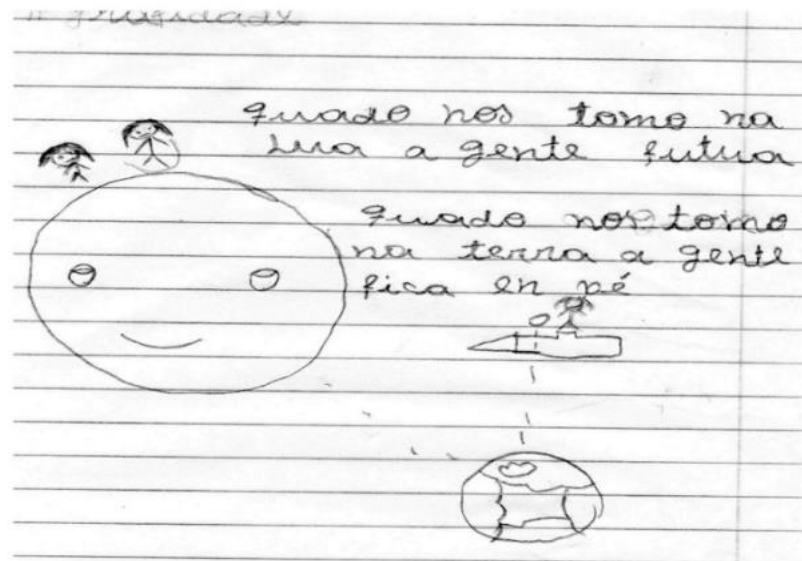 quado nos tomo na
Lua a gente futua
quado nos tomo
na terra a gente
fica en pé